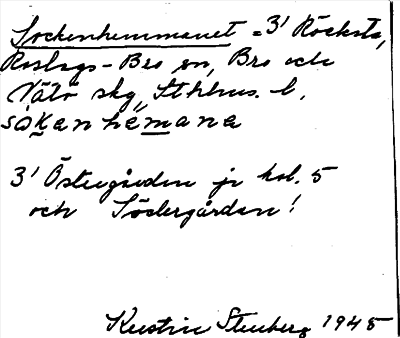 Sockenhemmanet = 3' Röcksta,
Roslags-Bro sn, Bro och
Vätö skg, Sthlms. l.
sɷkanhemana
3' Östergården jr kol. 5
och Södergården!
Kerstin Stenberg 1945